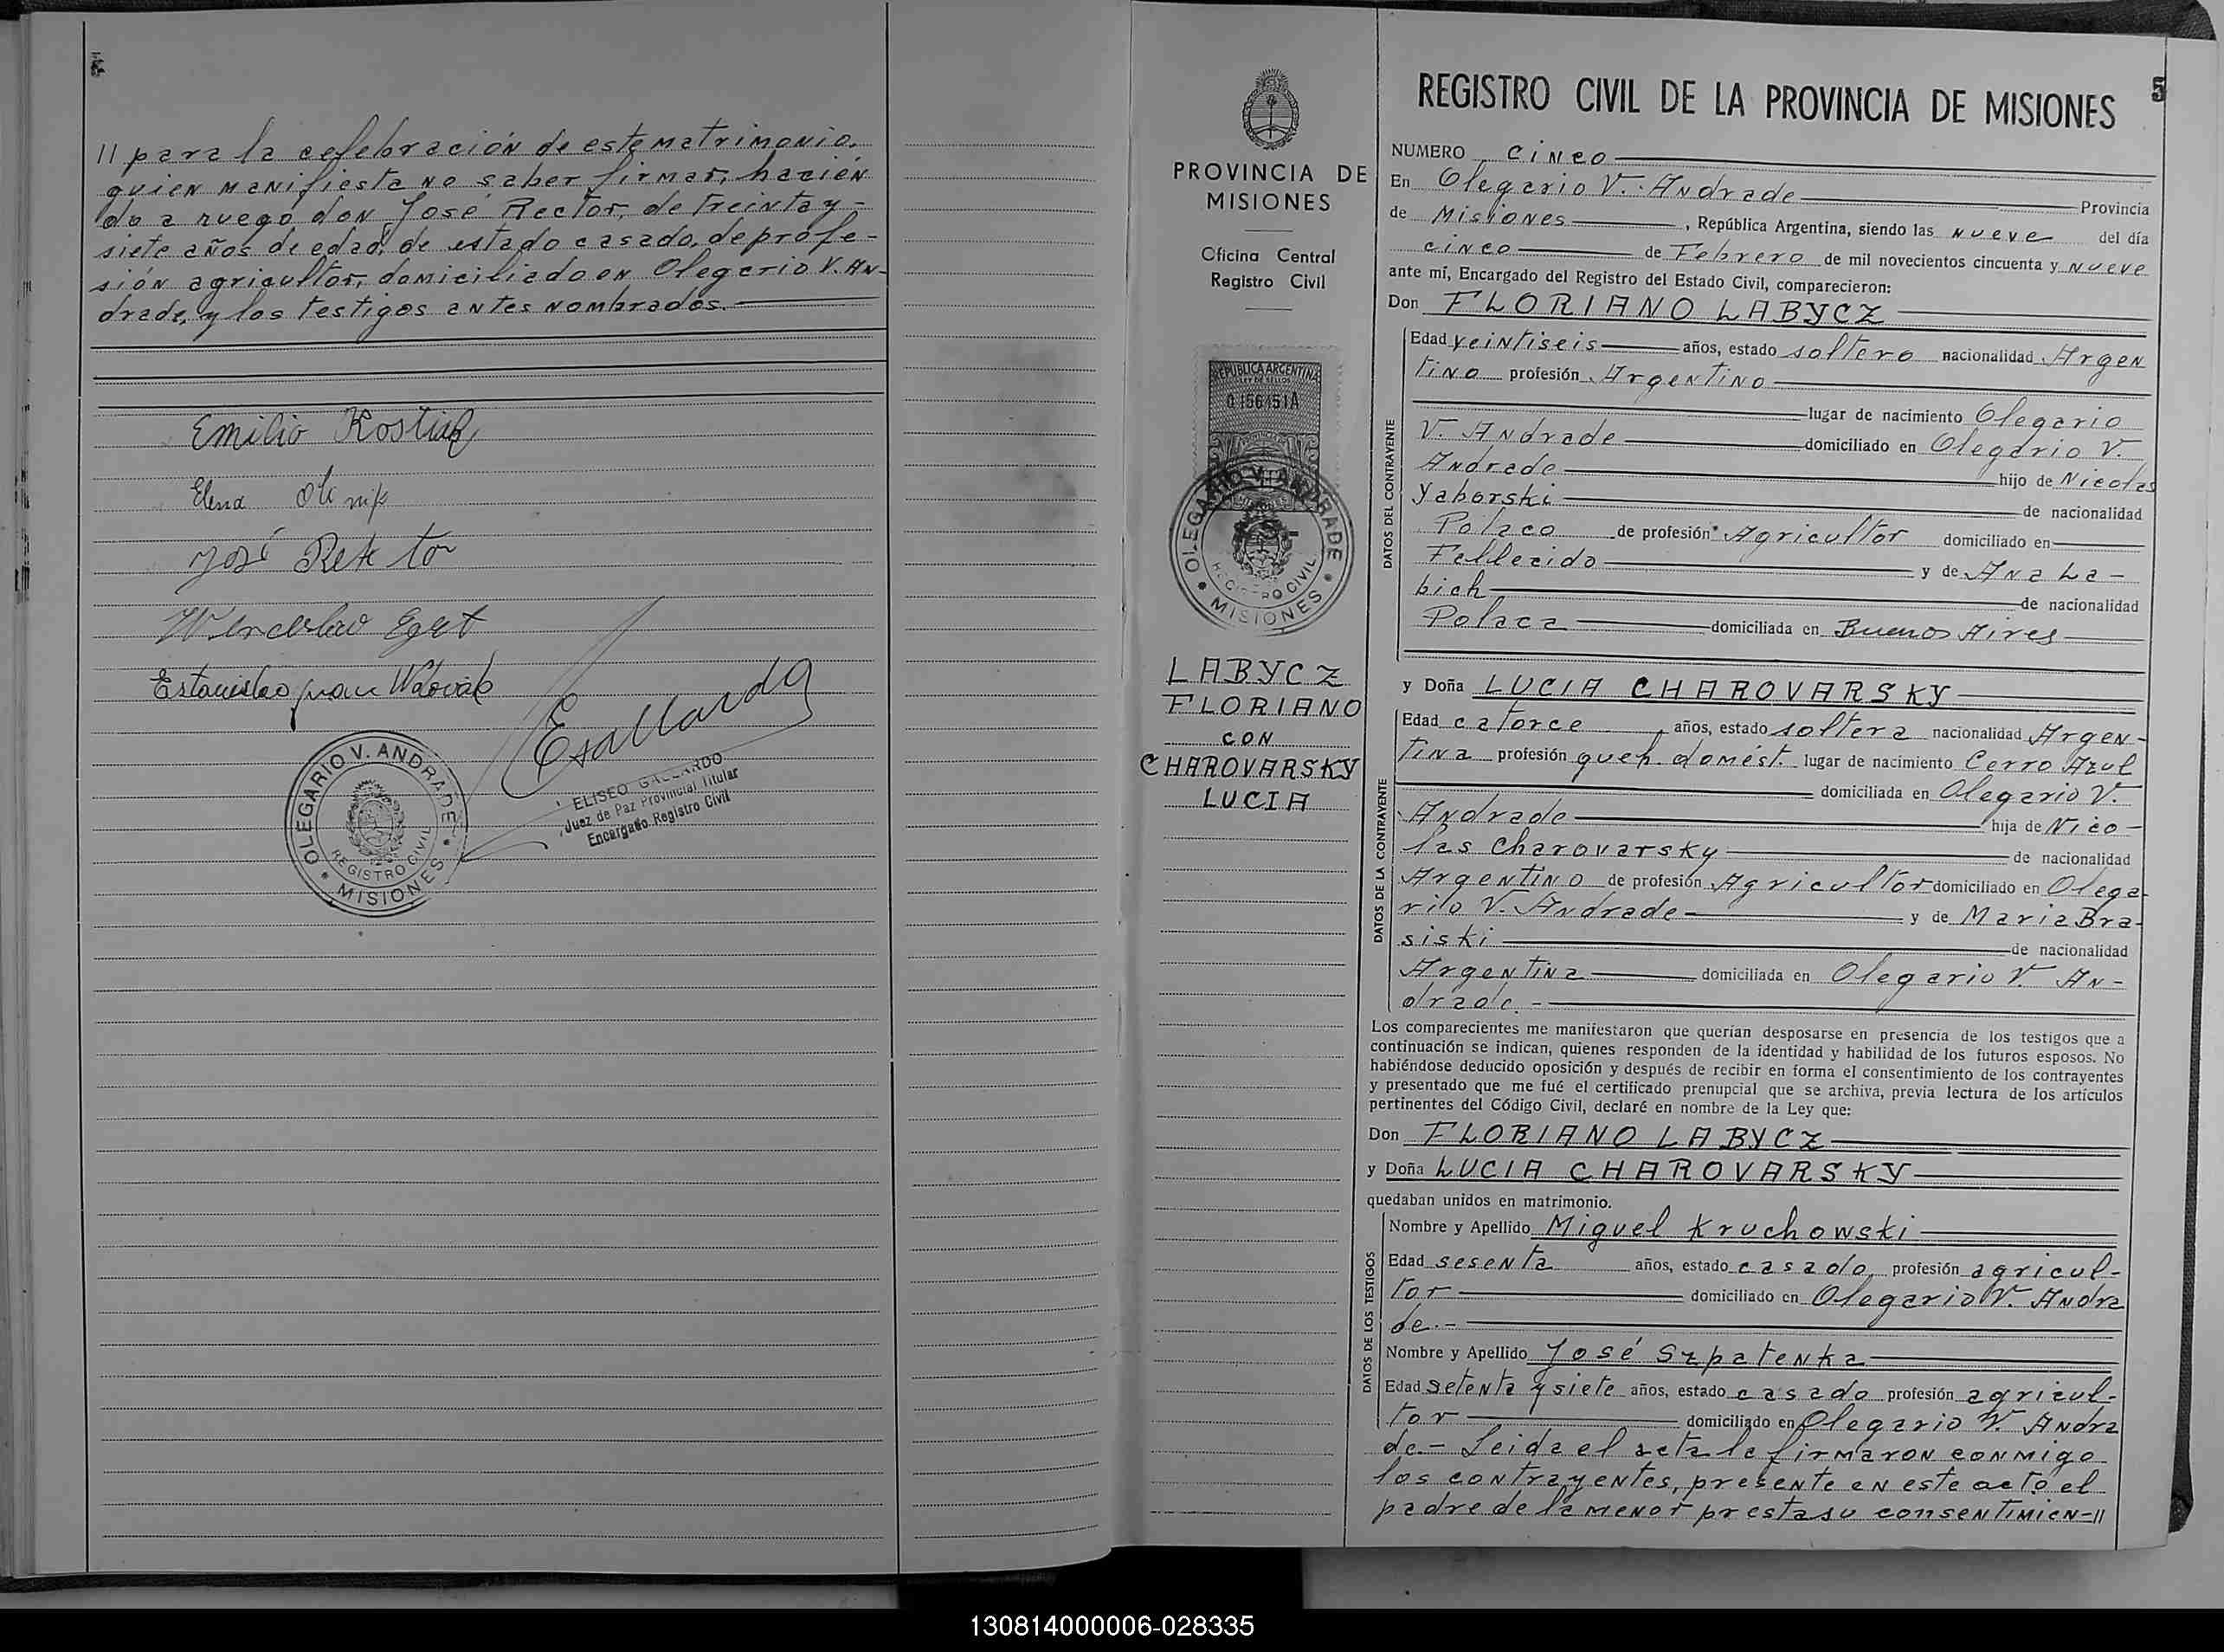 // para la celebración de este matrimonio,
quien manifiesta no saber firmar, hacién
dolo a ruego don José Rector, de treinta y-
siete años de edad, de estado casado, de profe-
sión agricultor, domiciliado en Olegario V. An-
drade, y los testigos antes nombrados.
Emilio Kostiuk
Elena
José Rektor
Estanislao Juan
OLEGARIO V. ANDRADE
REGISTRO CIVIL
* MISIONES *
ELISEO GALLARDO
Juez de Paz Provincial Titular
Encargado Registro Civil
PROVINCIA DE
MISIONES
Oficina Central
Registro Civil
REPUBLICA ARGENTINA
LEY DE SELLOS
OLEGARIO V. ANDRADE
REGISTRO CIVIL
* MISIONES *
LABYCZ
FLORIANO
CON
CHAROVARSKY
LUCIA
REGISTRO CIVIL DE LA PROVINCIA DE MISIONES
5
NUMERO cinco
En Olegario V. Andrade Provincia
de Misiones, República Argentina, siendo las nueve del día
cinco de Febrero de mil novecientos cincuenta y nueve
ante mí, Encargado del Registro del Estado Civil, comparecieron:
Don FLORIANO LABYCZ
DATOS DEL CONTRAYENTE
Edad veintiseis años, estado soltero nacionalidad Argen
tino profesión Argentino
lugar de nacimiento Olegario
V. Andrade domiciliado en Olegario V.
Andrade hijo de Nicolas
Yaborski de nacionalidad
Polaco de profesión Agricultor domiciliado en
Fallecido y de Ana La-
bich de nacionalidad
Polaca domiciliada en Buenos Aires
y Doña LUCIA CHAROVARSKY
DATOS DE LA CONTRAYENTE
Edad catorce años, estado soltera nacionalidad Argen-
tina profesión queh. domést. lugar de nacimiento Cerro Azul
domiciliada en Olegario V.
Andrade hija de Nico-
las Charovarsky de nacionalidad
Argentino de profesión Agricultor domiciliado en Olega-
rilo V. Andrade y de Maria Bra-
siski de nacionalidad
Argentina domiciliada en Olegario V. An-
drade.-
Los comparecientes me manifestaron que querían desposarse en presencia de los testigos que a
continuación se indican, quienes responden de la identidad y habilidad de los futuros esposos. No
habiéndose deducido oposición y después de recibir en forma el consentimiento de los contrayentes
y presentado que me fué el certificado prenupcial que se archiva, previa lectura de los artículos
pertinentes del Código Civil, declaré en nombre de la Ley que:
Don FLORIANO LABYCZ
y Doña LUCIA CHAROVARSKY
quedaban unidos en matrimonio.
DATOS DE LOS TESTIGOS
Nombre y Apellido Miguel Kruchowski
Edad sesenta años, estado casado, profesión agricul-
tor domiciliado en Olegario V. Andra
de.-
Nombre y Apellido José Szpatenka
Edad setenta y siete años, estado casado profesión agricul-
tor domiciliado en Olegario V. Andra
de.- Leida el acta la firmaron conmigo
los contrayentes, presente en este acto el
padre de la menor presta su consentimien-//
130814000006-028335